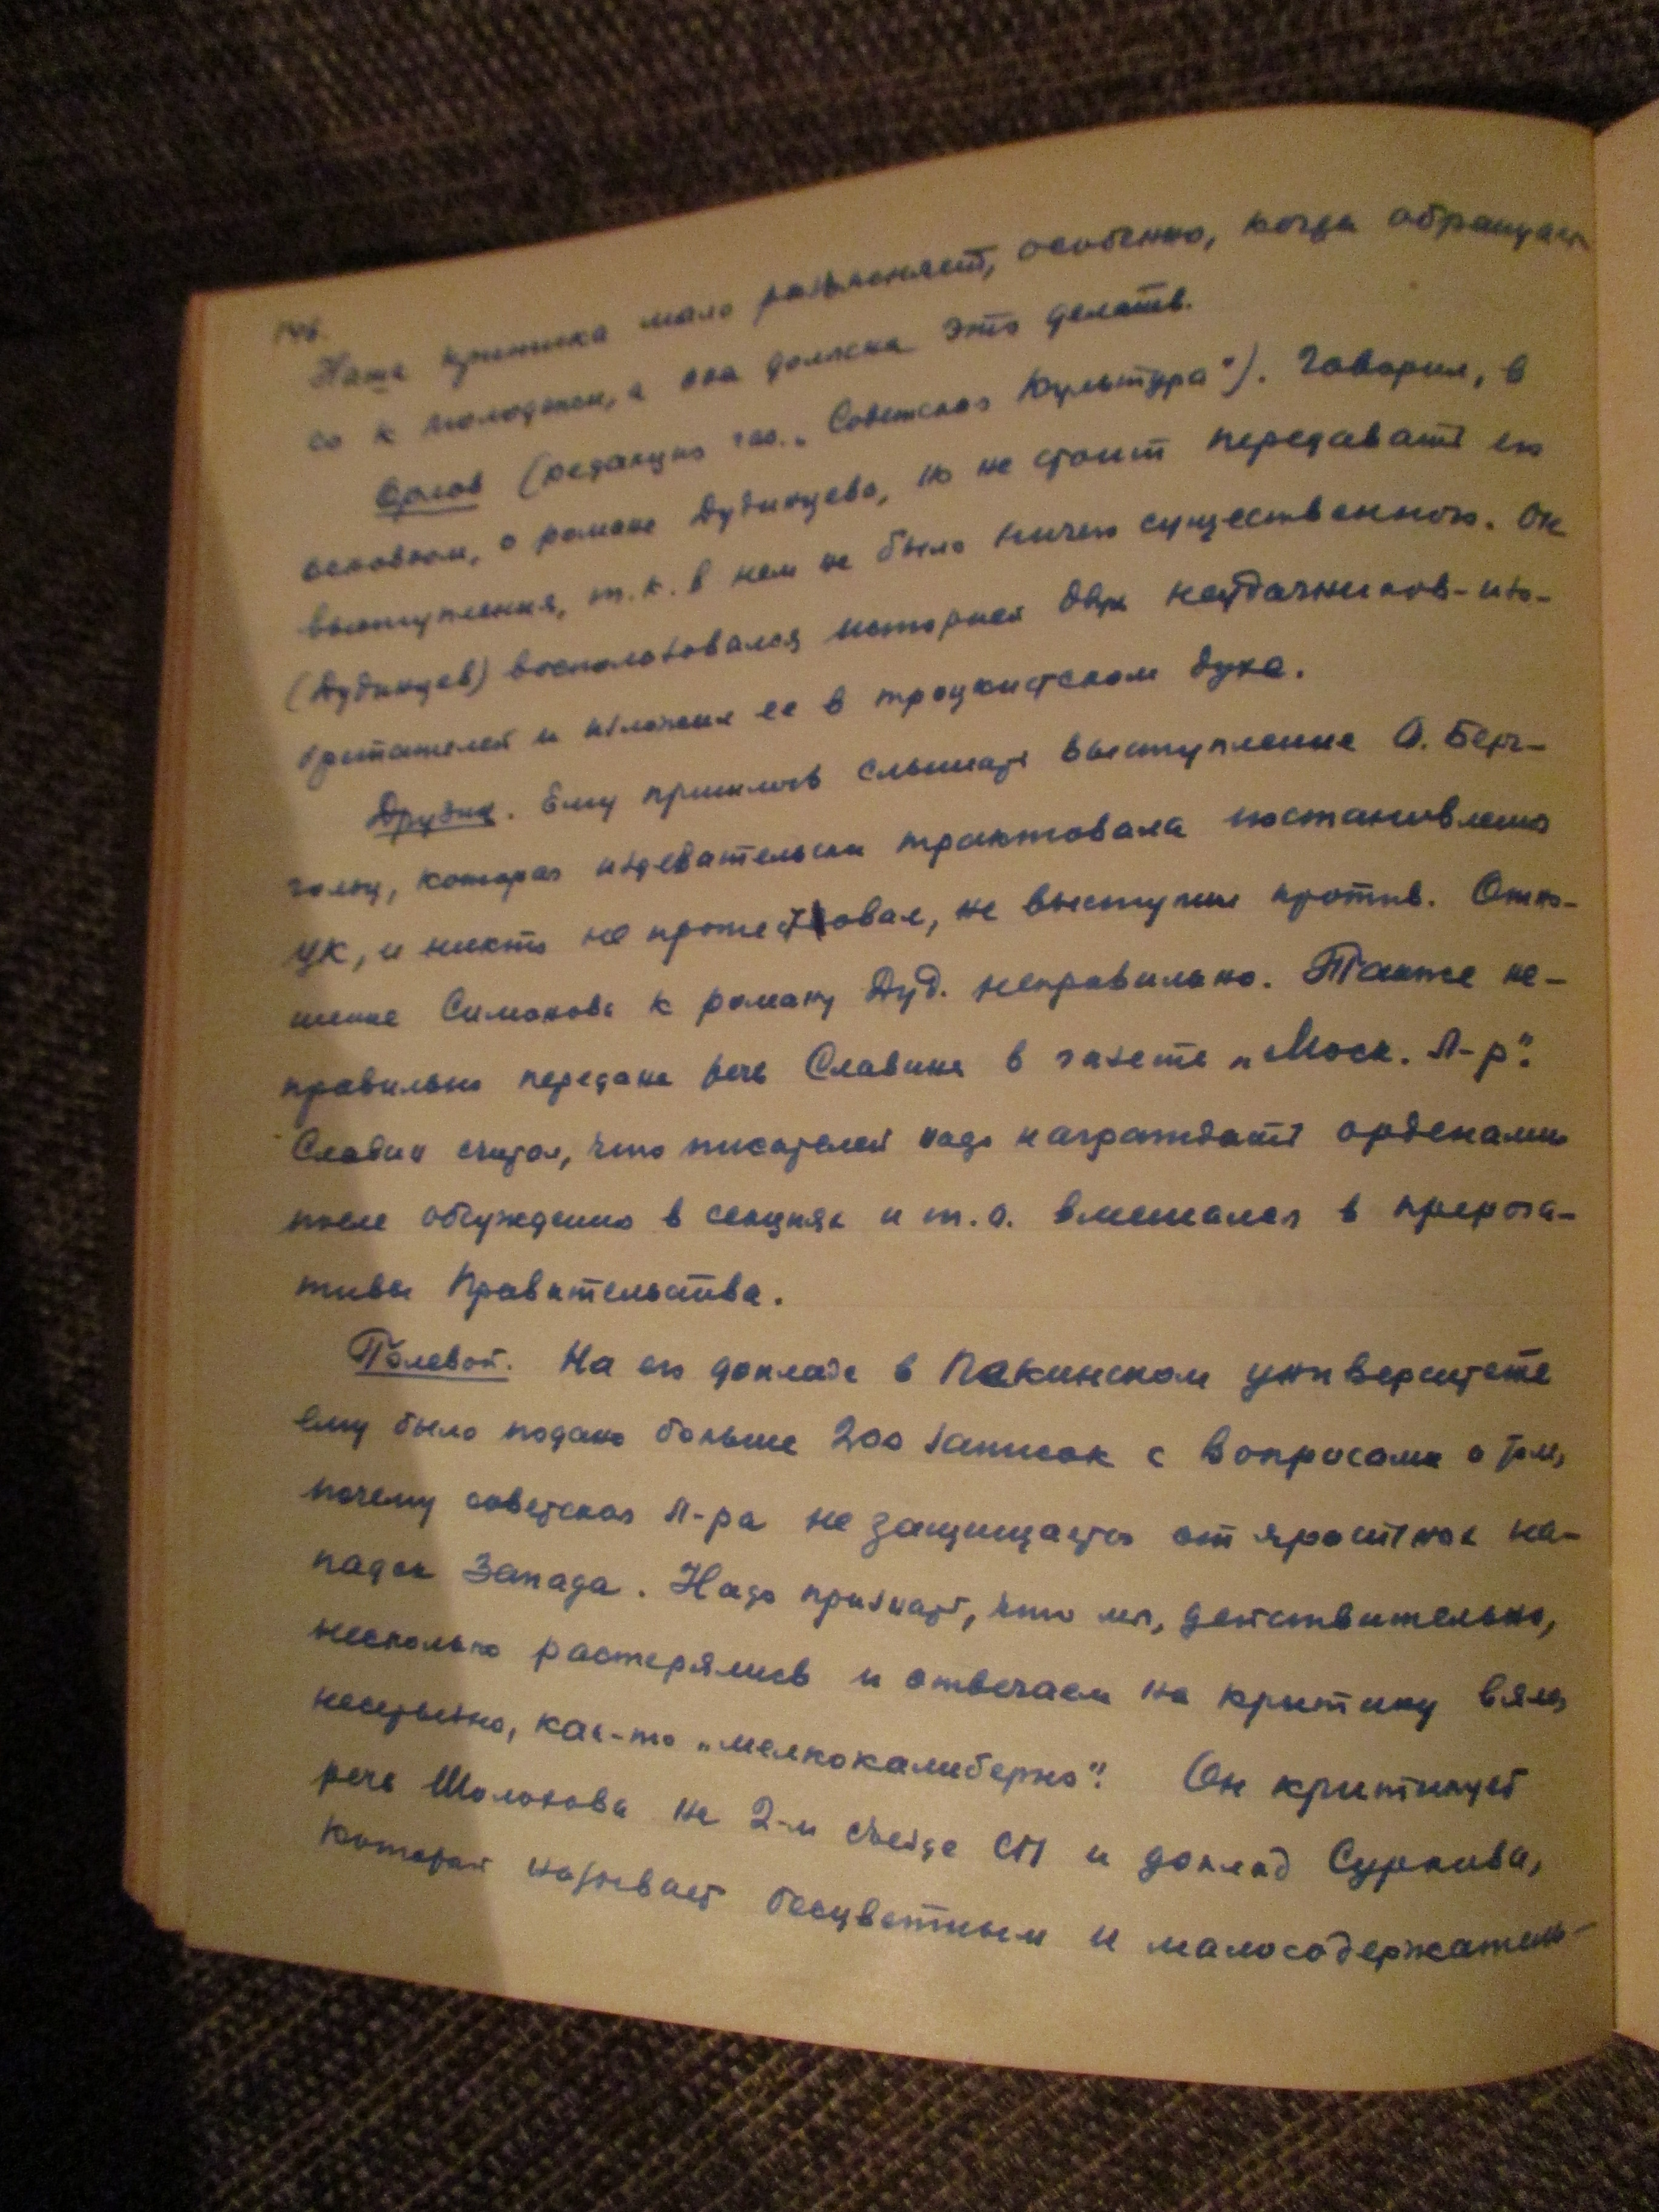 146.
Наша критика мало разъясняет, особенно, когда обращает
ся к молодежи, а она должна это делать.
Орлов (редакция газ. „Советская Культура"). Говорил, в
основном, о романе Дудинцева, но не стоит передавать его
выступления, т.к. в нем не было ничего существенного. Он
(Дудинцев) воспользовался историей двух неудачников-изо-
бретателей и изложил ее в троцкистском духе.
Друзин. Ему пришлось слышать выступление О. Берг-
гольц, которая издевательски трактовала постановления
ЦК, и никто не протестовал, не выступил против. Отно-
шение Симонова к роману Дуд. неправильно. Также не-
правильно передана речь Славина в газете „Моск. Л-р".
Славин считал, что писателей надо награждать орденами
после обсуждения в секциях и т.о. вмешался в прерога-
тивы Правительства.
Полевой. На его докладе в Пекинском университете
ему было подано больше 200 записок с вопросами о том,
почему советская л-ра не защищается от яростных на-
падок Запада. Надо признать, что мы, действительно,
несколько растерялись и отвечаем на критику вяло,
несерьезно, как-то „мелкокалиберно". Он критикует
речь Шолохова на 2-м съезде СП и доклад Суркова,
который называет бесцветным и малосодержатель-